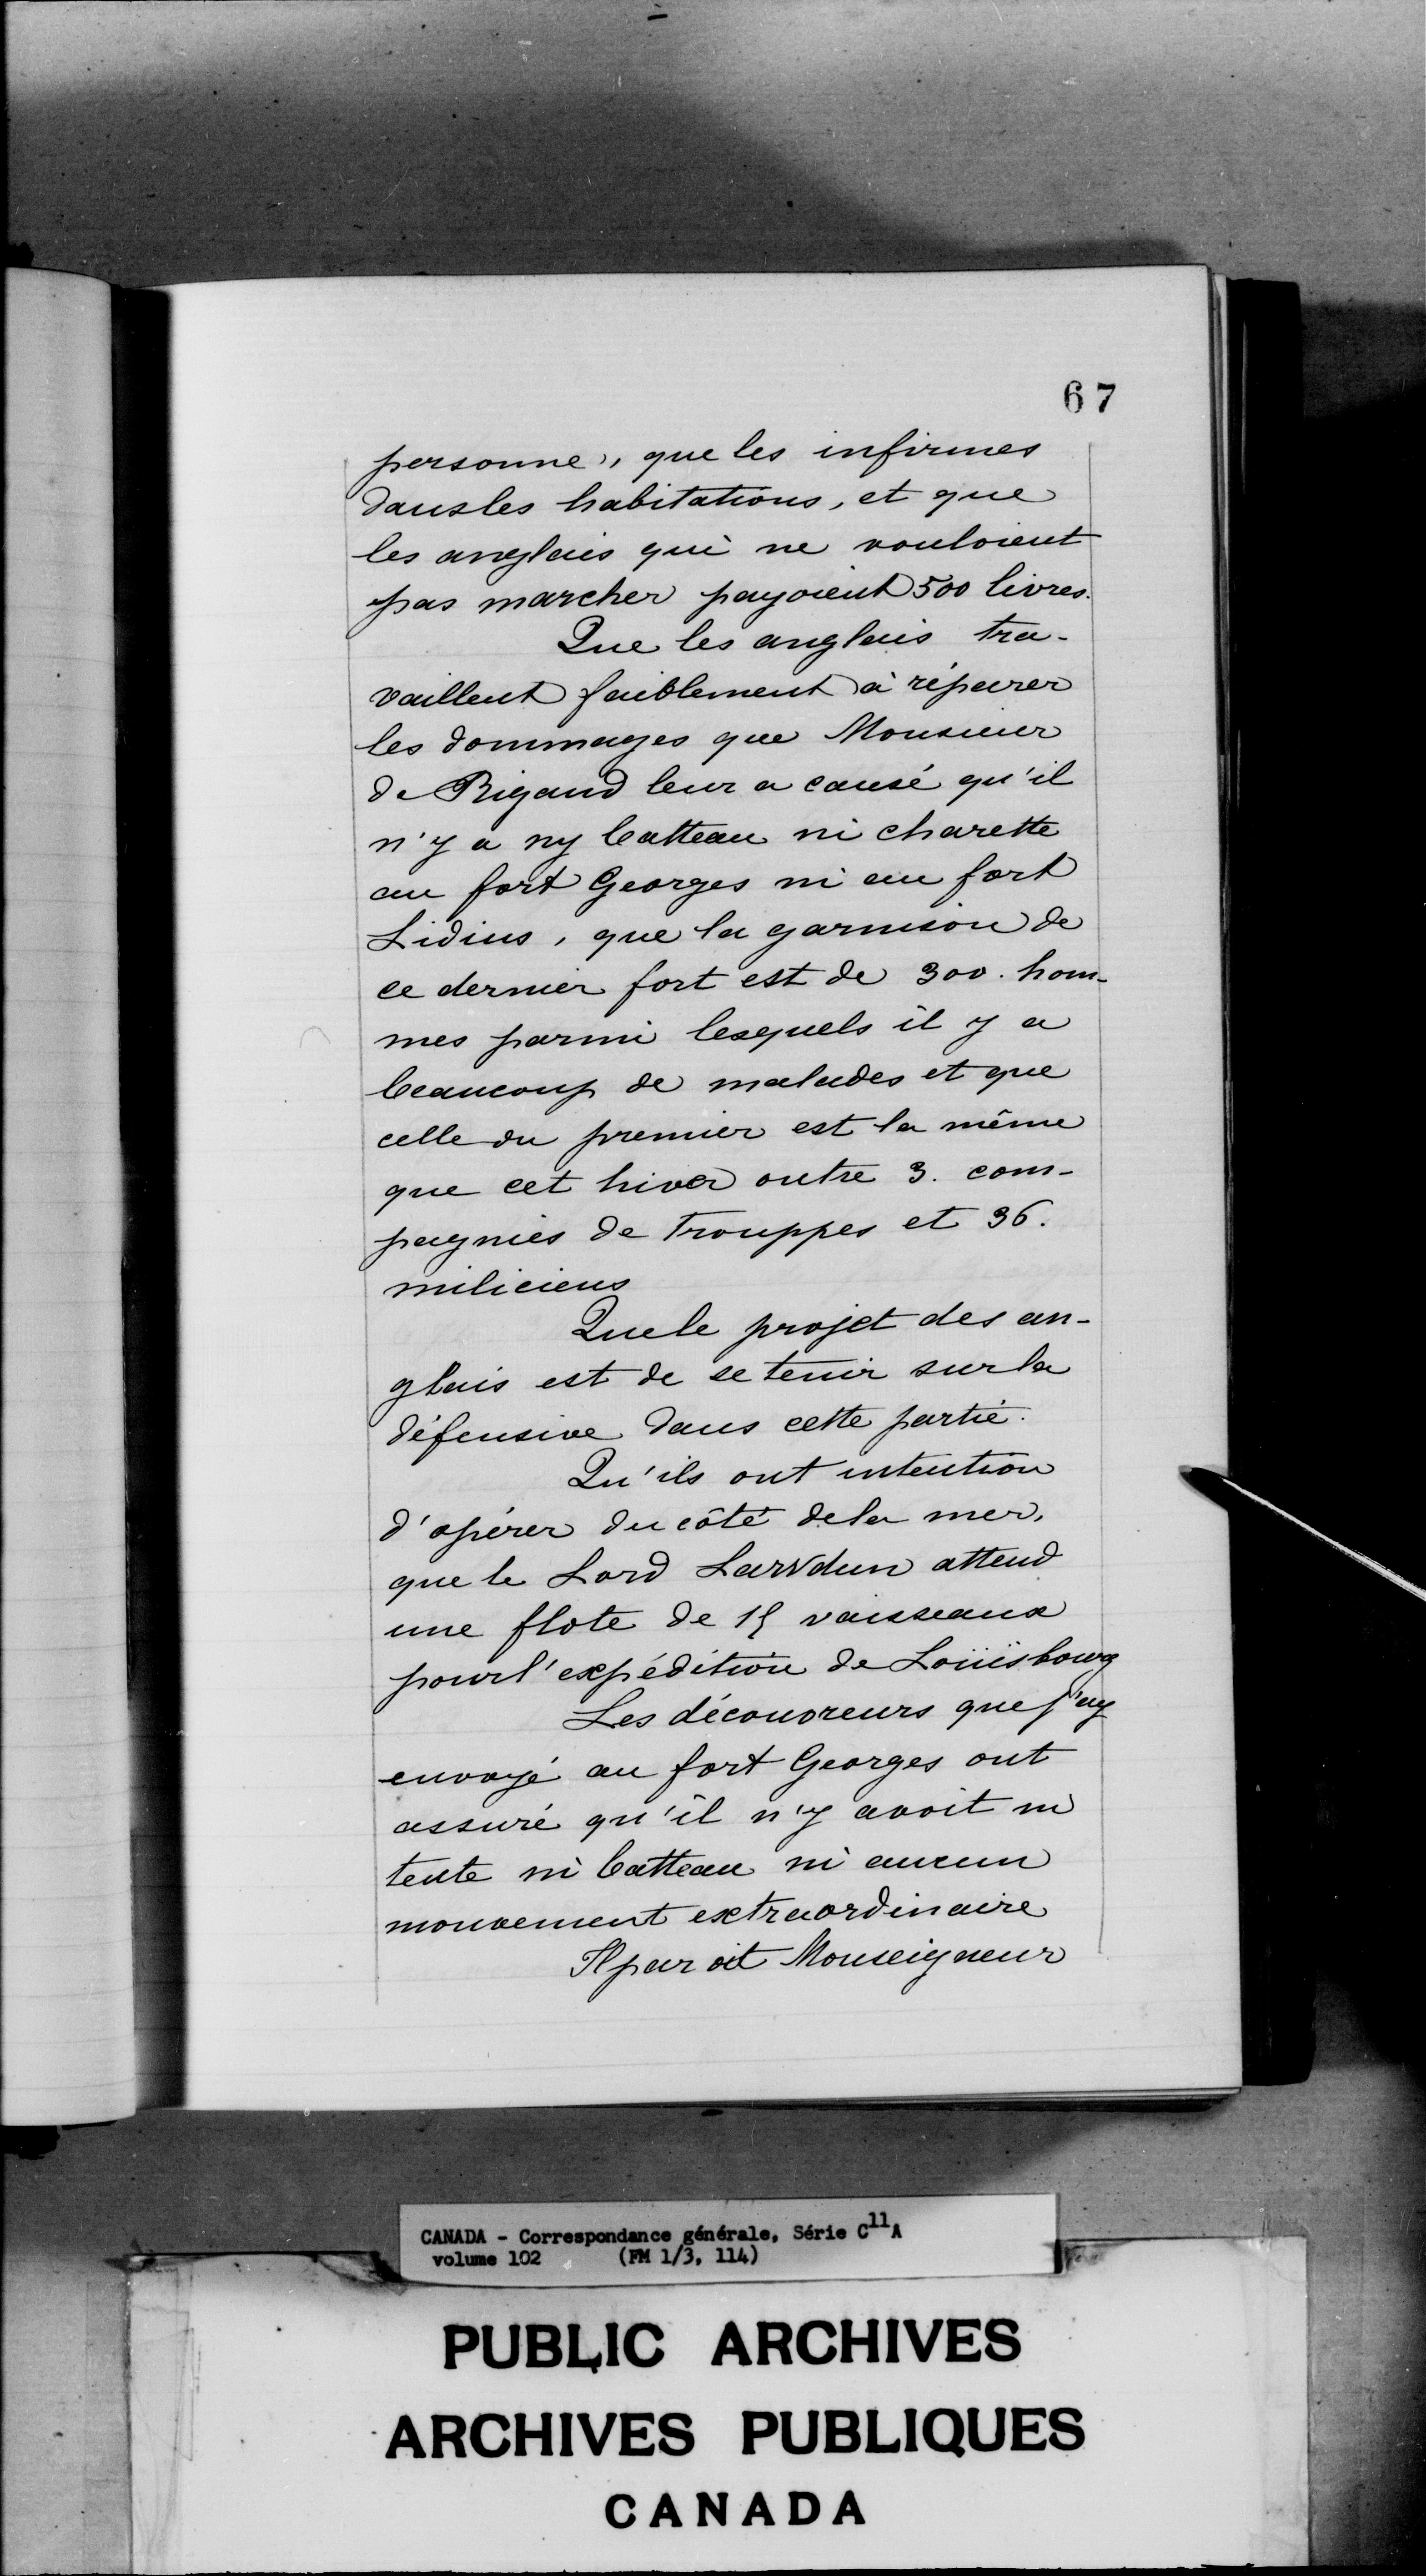 67
personne, que les infirmes
dans les habitations, et que
les anglais qui ne vouloient
pas marcher payoient 500 livres.
Que les anglais tra-
vaillent faiblement à réparer
les dommages que Monsieur
de Rigaud leur a causé qu'il
n'y a ny batteau ni charette
au fort Georges ni au fort
Lidius, que la garnison de
ce dernier fort est de 300. hom-
mes parmi lesquels il y a
beaucoup de malades et que
celle du premier est la même
que cet hiver outre 3. com-
pagnies de trouppes et 36.
miliciens
Que le projet des an-
glais est de se tenir sur la
défensive dans cette partie.
Qu'ils ont intention
d'opérer du côté de la mer,
que le Lord Larvdun attend
une flote de 15 vaisseaux
pour l'expédition de Loüisbourg
Les découvreurs que j'ay
envoyé au fort Georges ont
assuré qu'il n'y avoit ni
tente ni batteau ni aucun
mouvement extraordinaire
Il paroit Monseigneur
CANADA - Correspondance générale, Série C11A
volume 102 (FM 1/3, 114)
PUBLIC ARCHIVES
ARCHIVES PUBLIQUES
CANADA